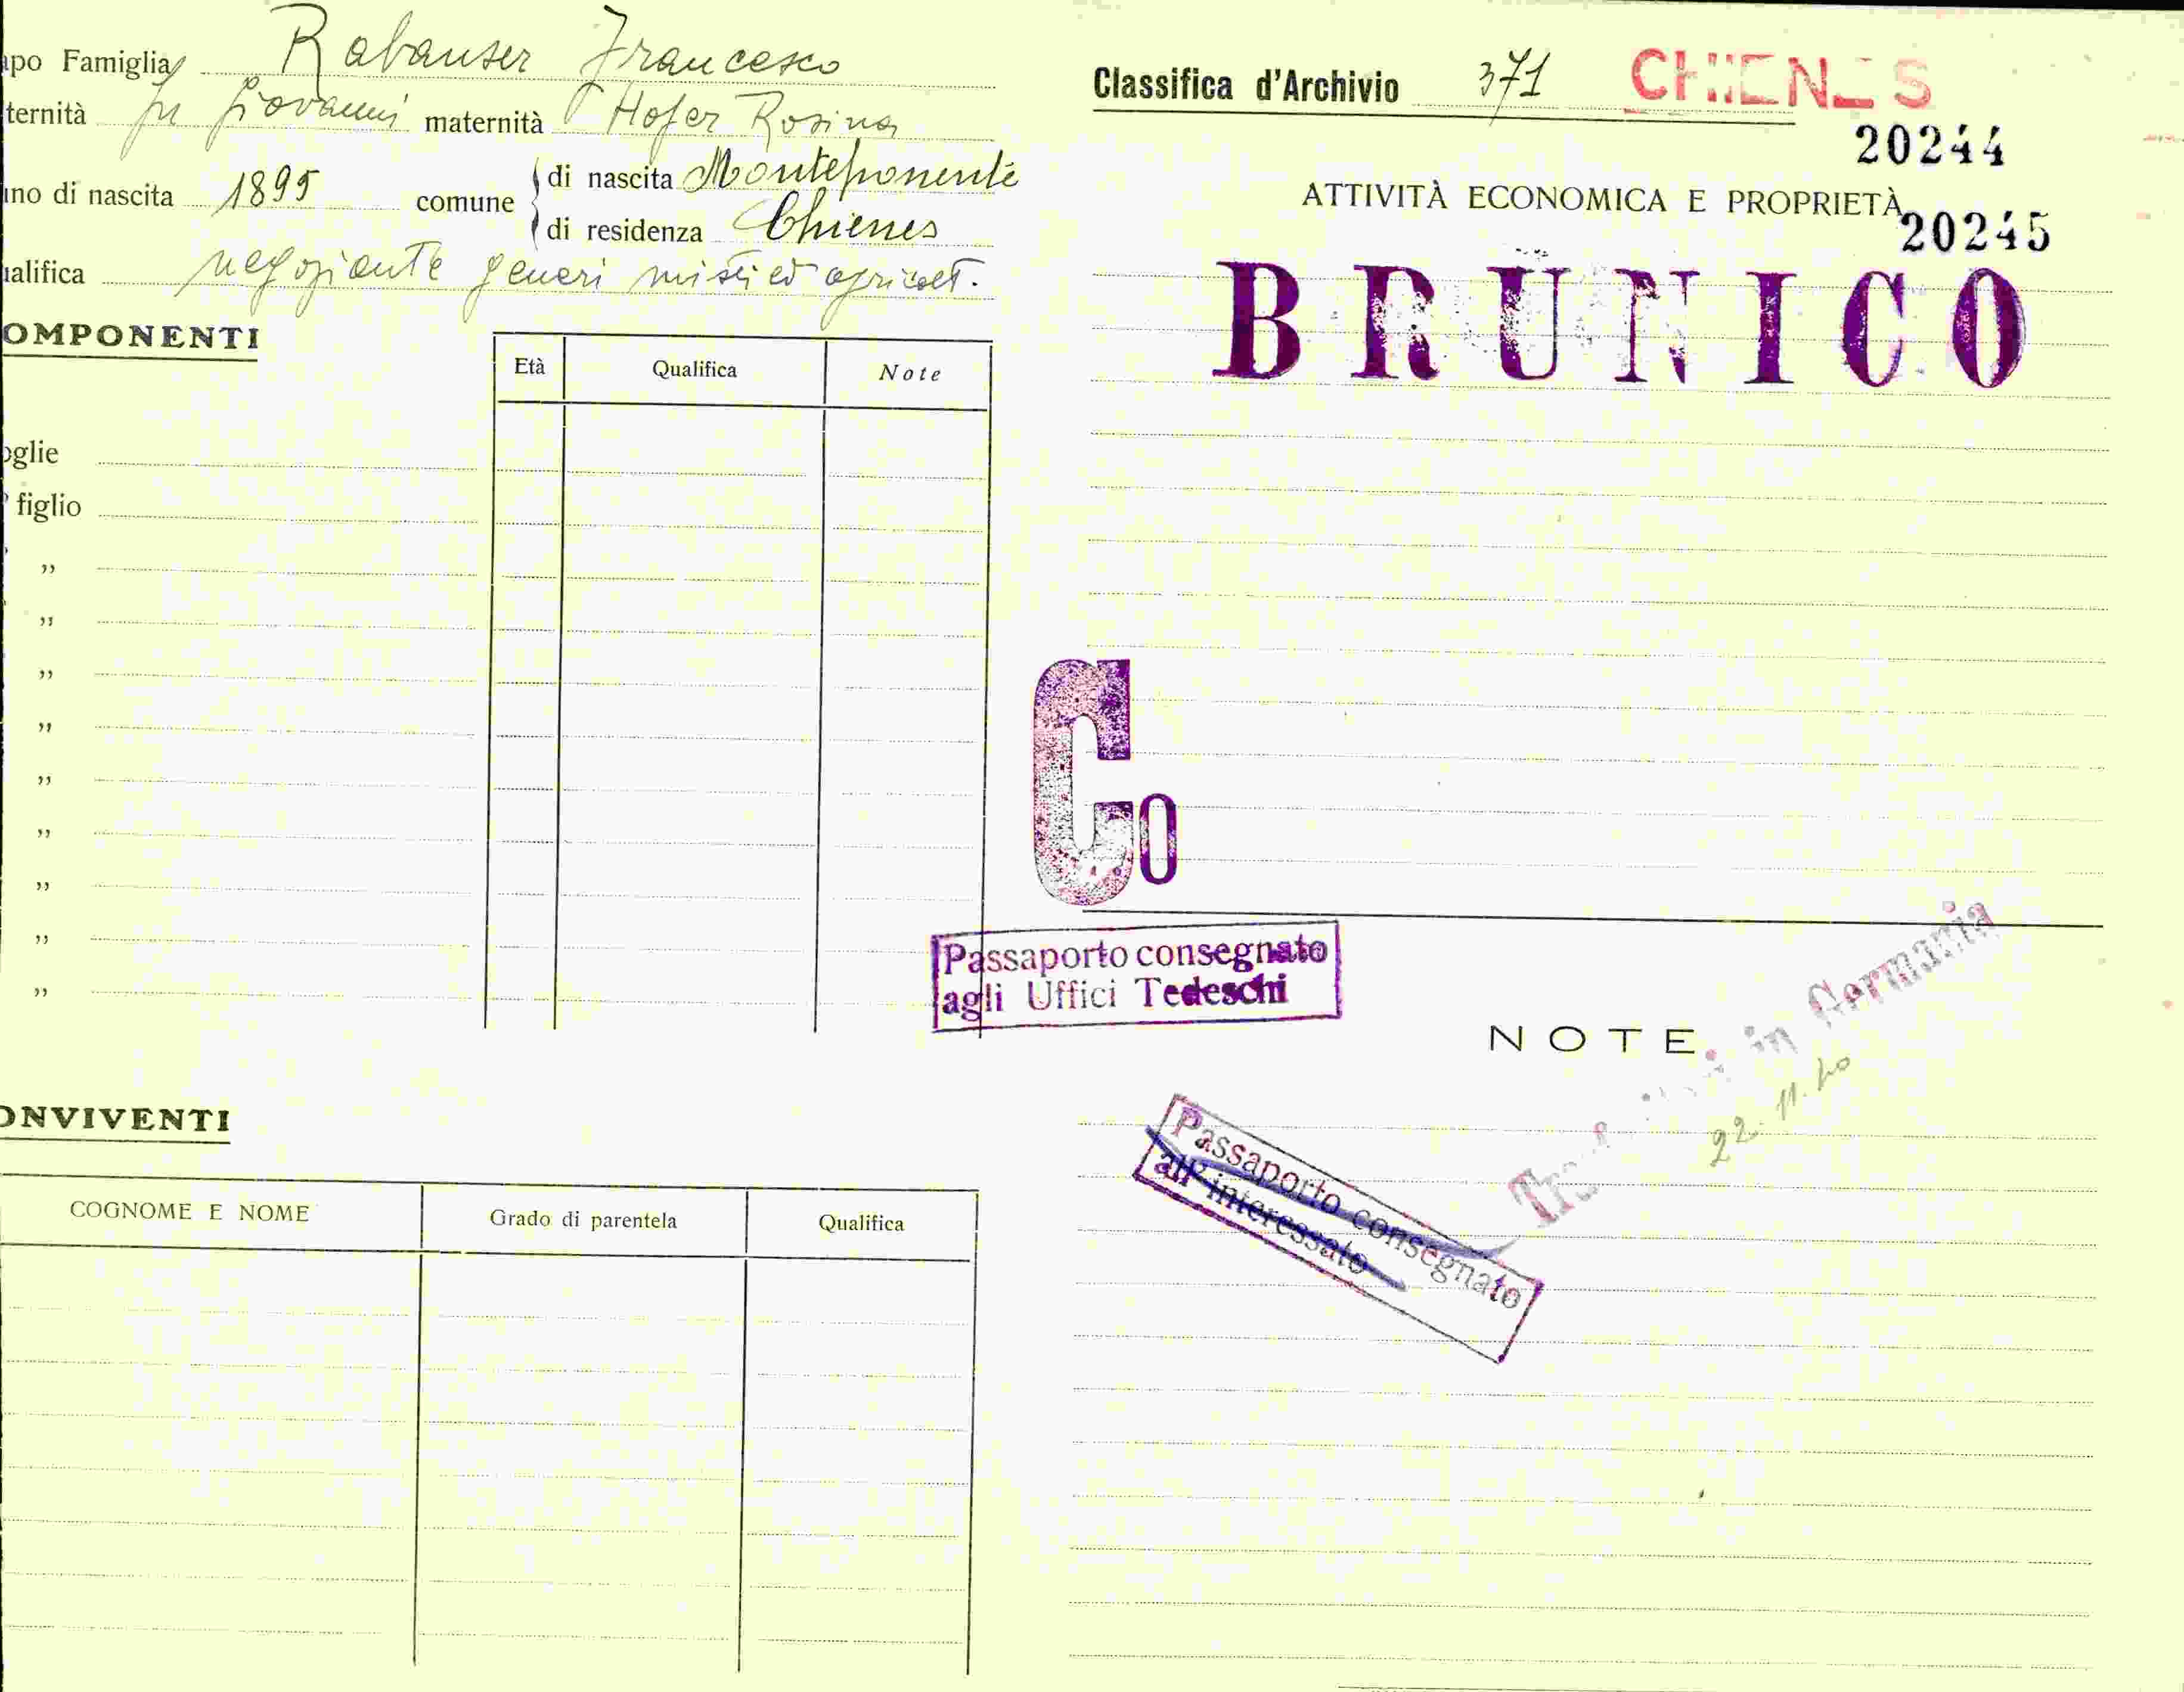 apo Famiglia Rabanser Francesco
ternità fu Giovanni maternità Hofer Rosina
ino di nascita 1895 comune di nascita Monteponente
di residenza Chienes
ualifica negoziante generi misti ed agricolt.
OMPONENTI
Età Qualifica Note
oglie
figlio
„
„
„
„
„
„
„
„
„
ONVIVENTI
COGNOME E NOME Grado di parentela Qualifica
Classifica d'Archivio 371 CHIENES
20244
ATTIVITÀ ECONOMICA E PROPRIETÀ
20245
BRUNICO
Co
Passaporto consegnato
agli Uffici Tedeschi
NOTE
in Germania
22.11.40
Passaporto consegnato
all'interessato